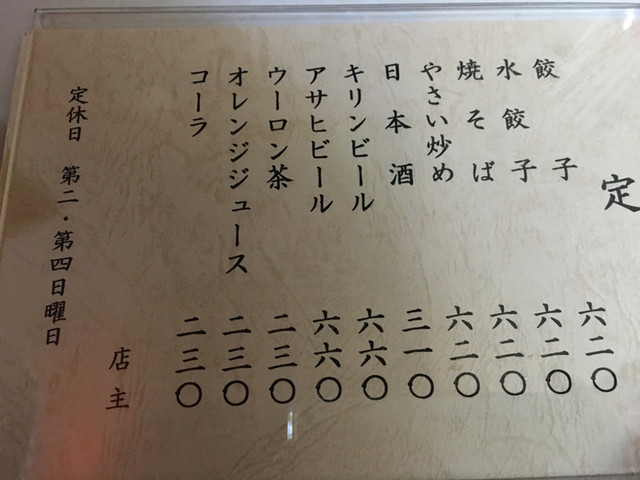 定
餃子 六二〇
水餃子 六二〇
焼そば 六二〇
やさい炒め 六二〇
日本酒 三一〇
キリンビール 六六〇
アサヒビール 六六〇
ウーロン茶 二三〇
オレンジジュース 二三〇
コーラ 二三〇
店主
定休日 第二・第四日曜日